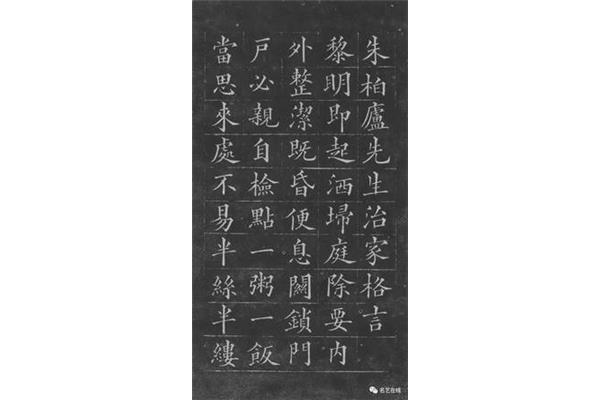 朱柏廬先生治家格言
黎明即起洒埽庭除要内
外整潔既昏便息關鎖門
戸必親自檢點一粥一飯
當思來處不易半絲半縷
名艺在线